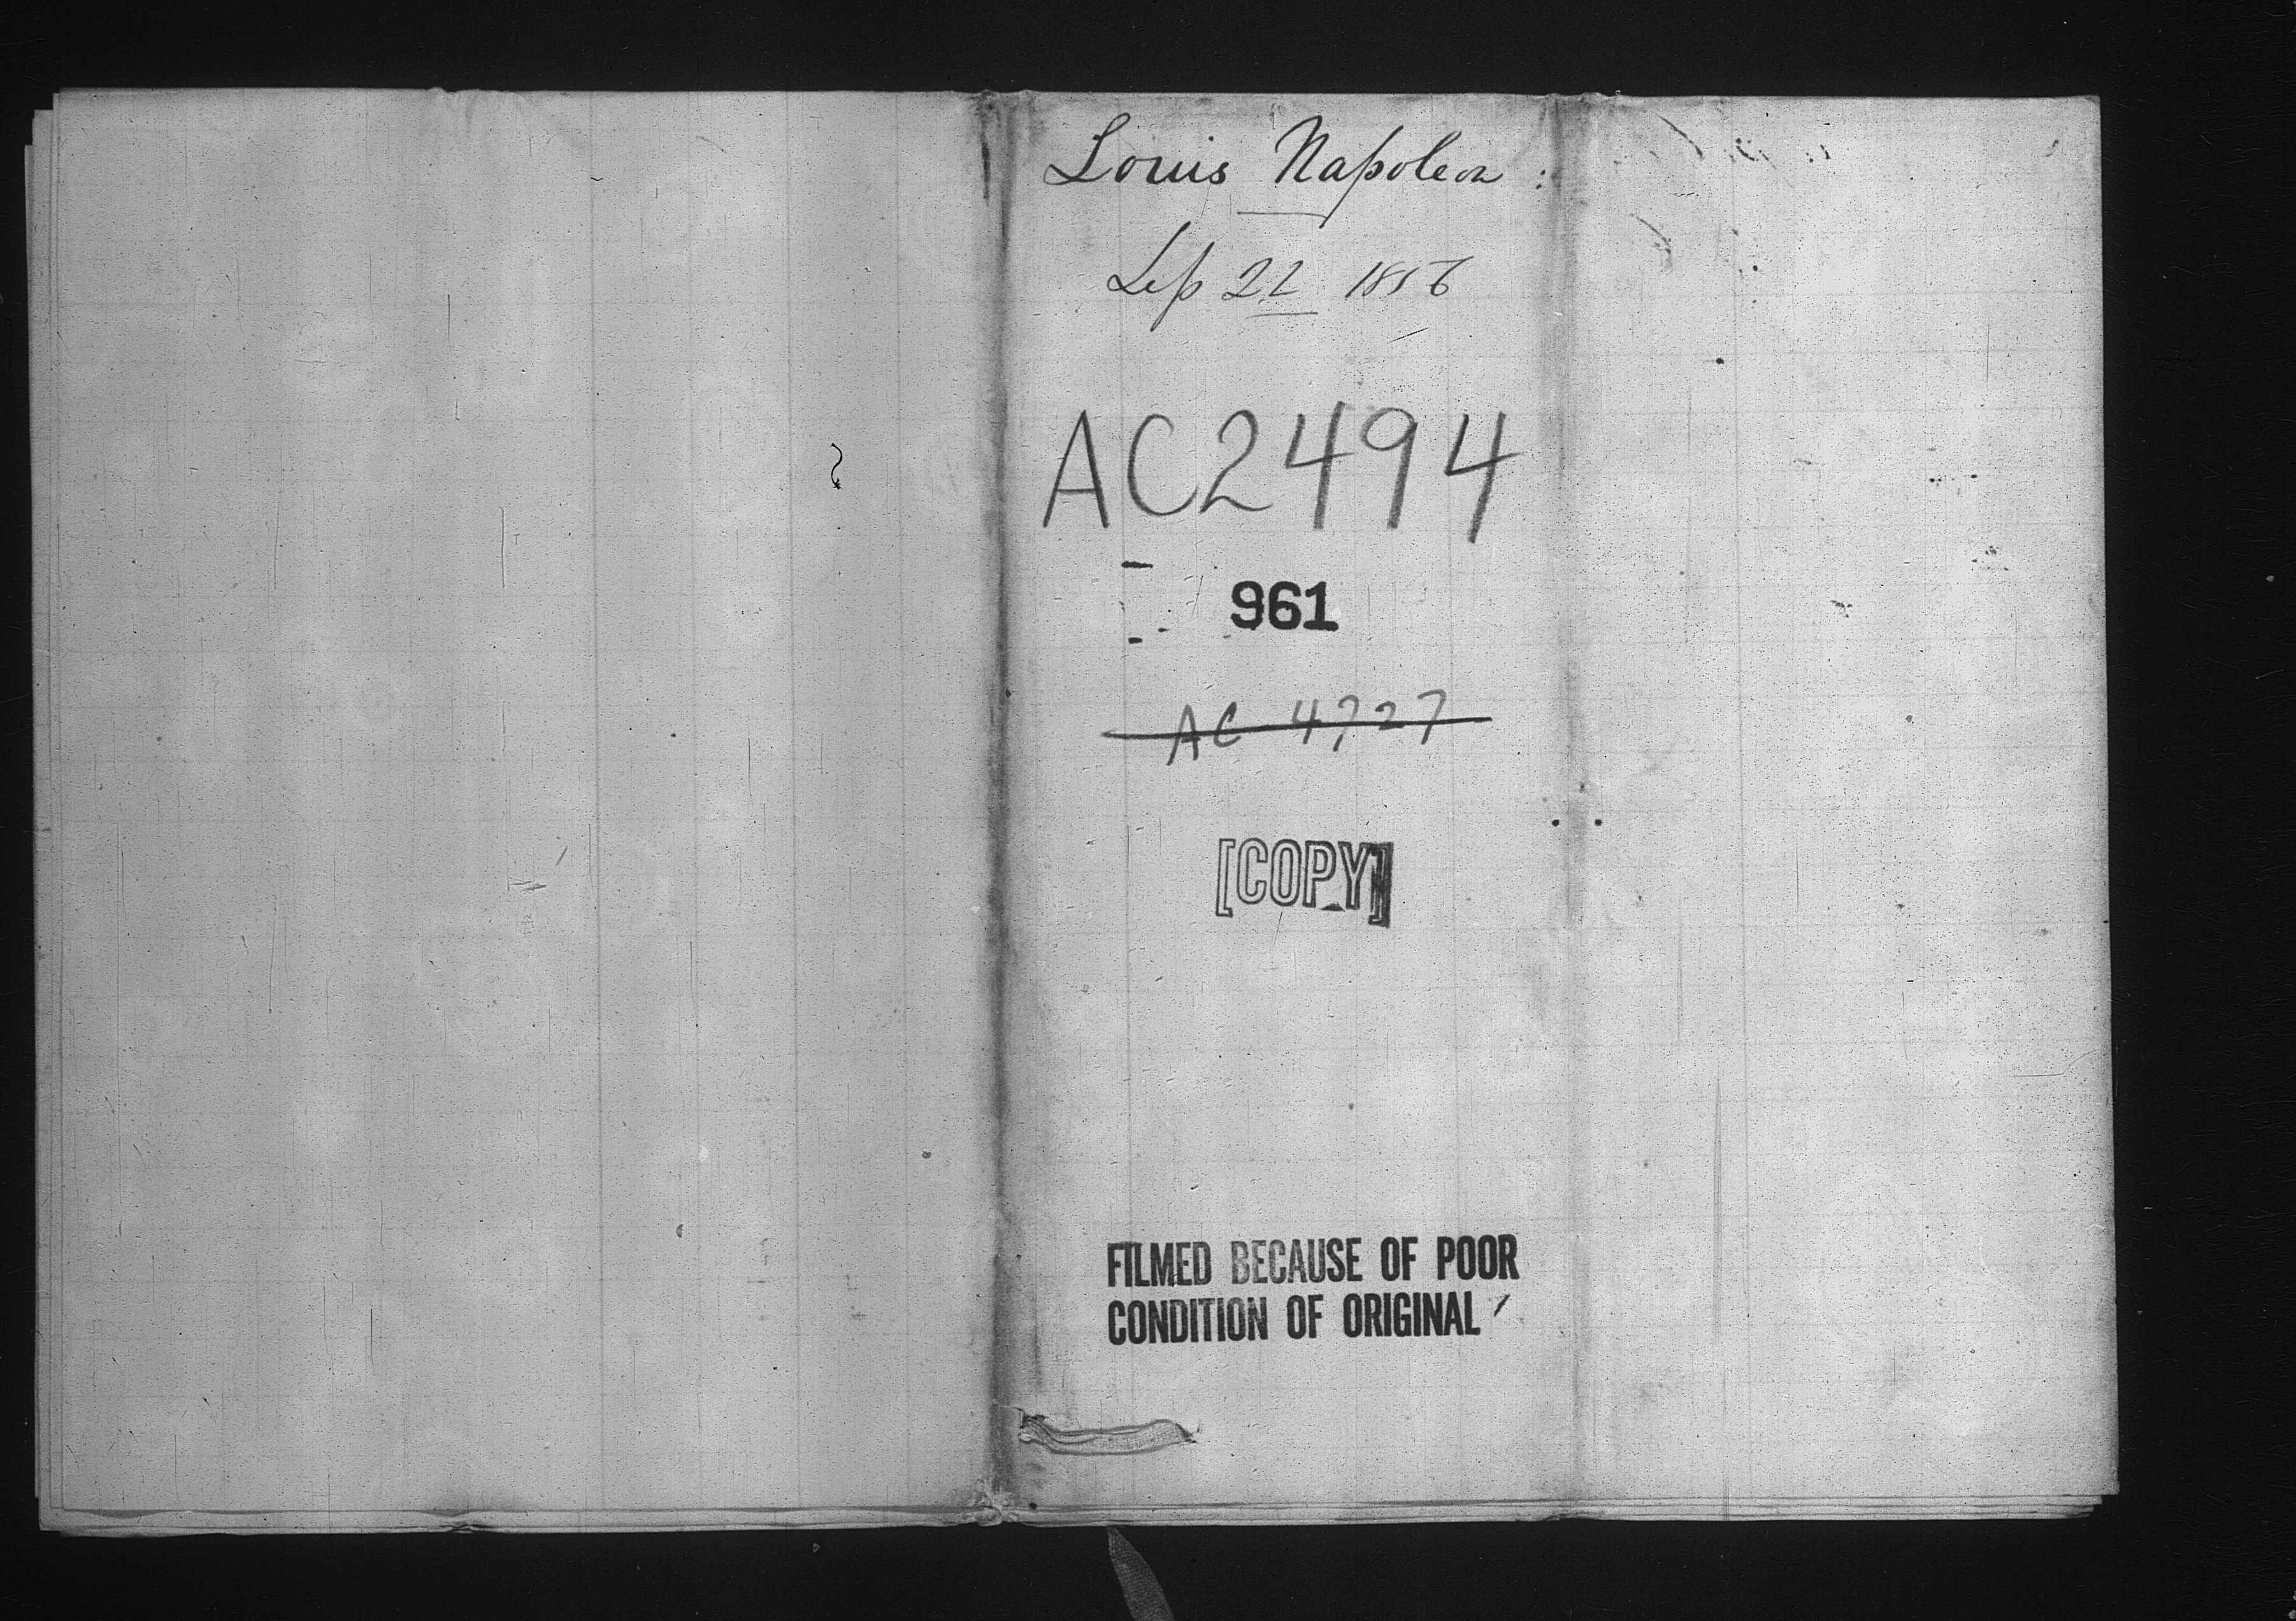 Louis Napoleon :
Sep 22 1856
AC2494
961
AC 4727
[COPY]
FILMED BECAUSE OF POOR
CONDITION OF ORIGINAL